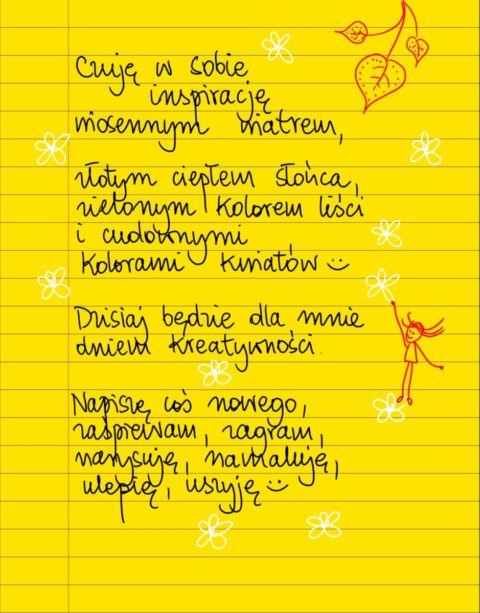 Czuję w sobie
inspirację
wiosennym wiatrem,
złotym ciepłem słońca,
zielonym kolorem liści
i cudownymi
kolorami kwiatów :)
Dzisiaj będzie dla mnie
dniem kreatywności.
Napiszę coś nowego,
zaśpiewam, zagram,
narysuję, namaluję,
ulepię, uszyję :)